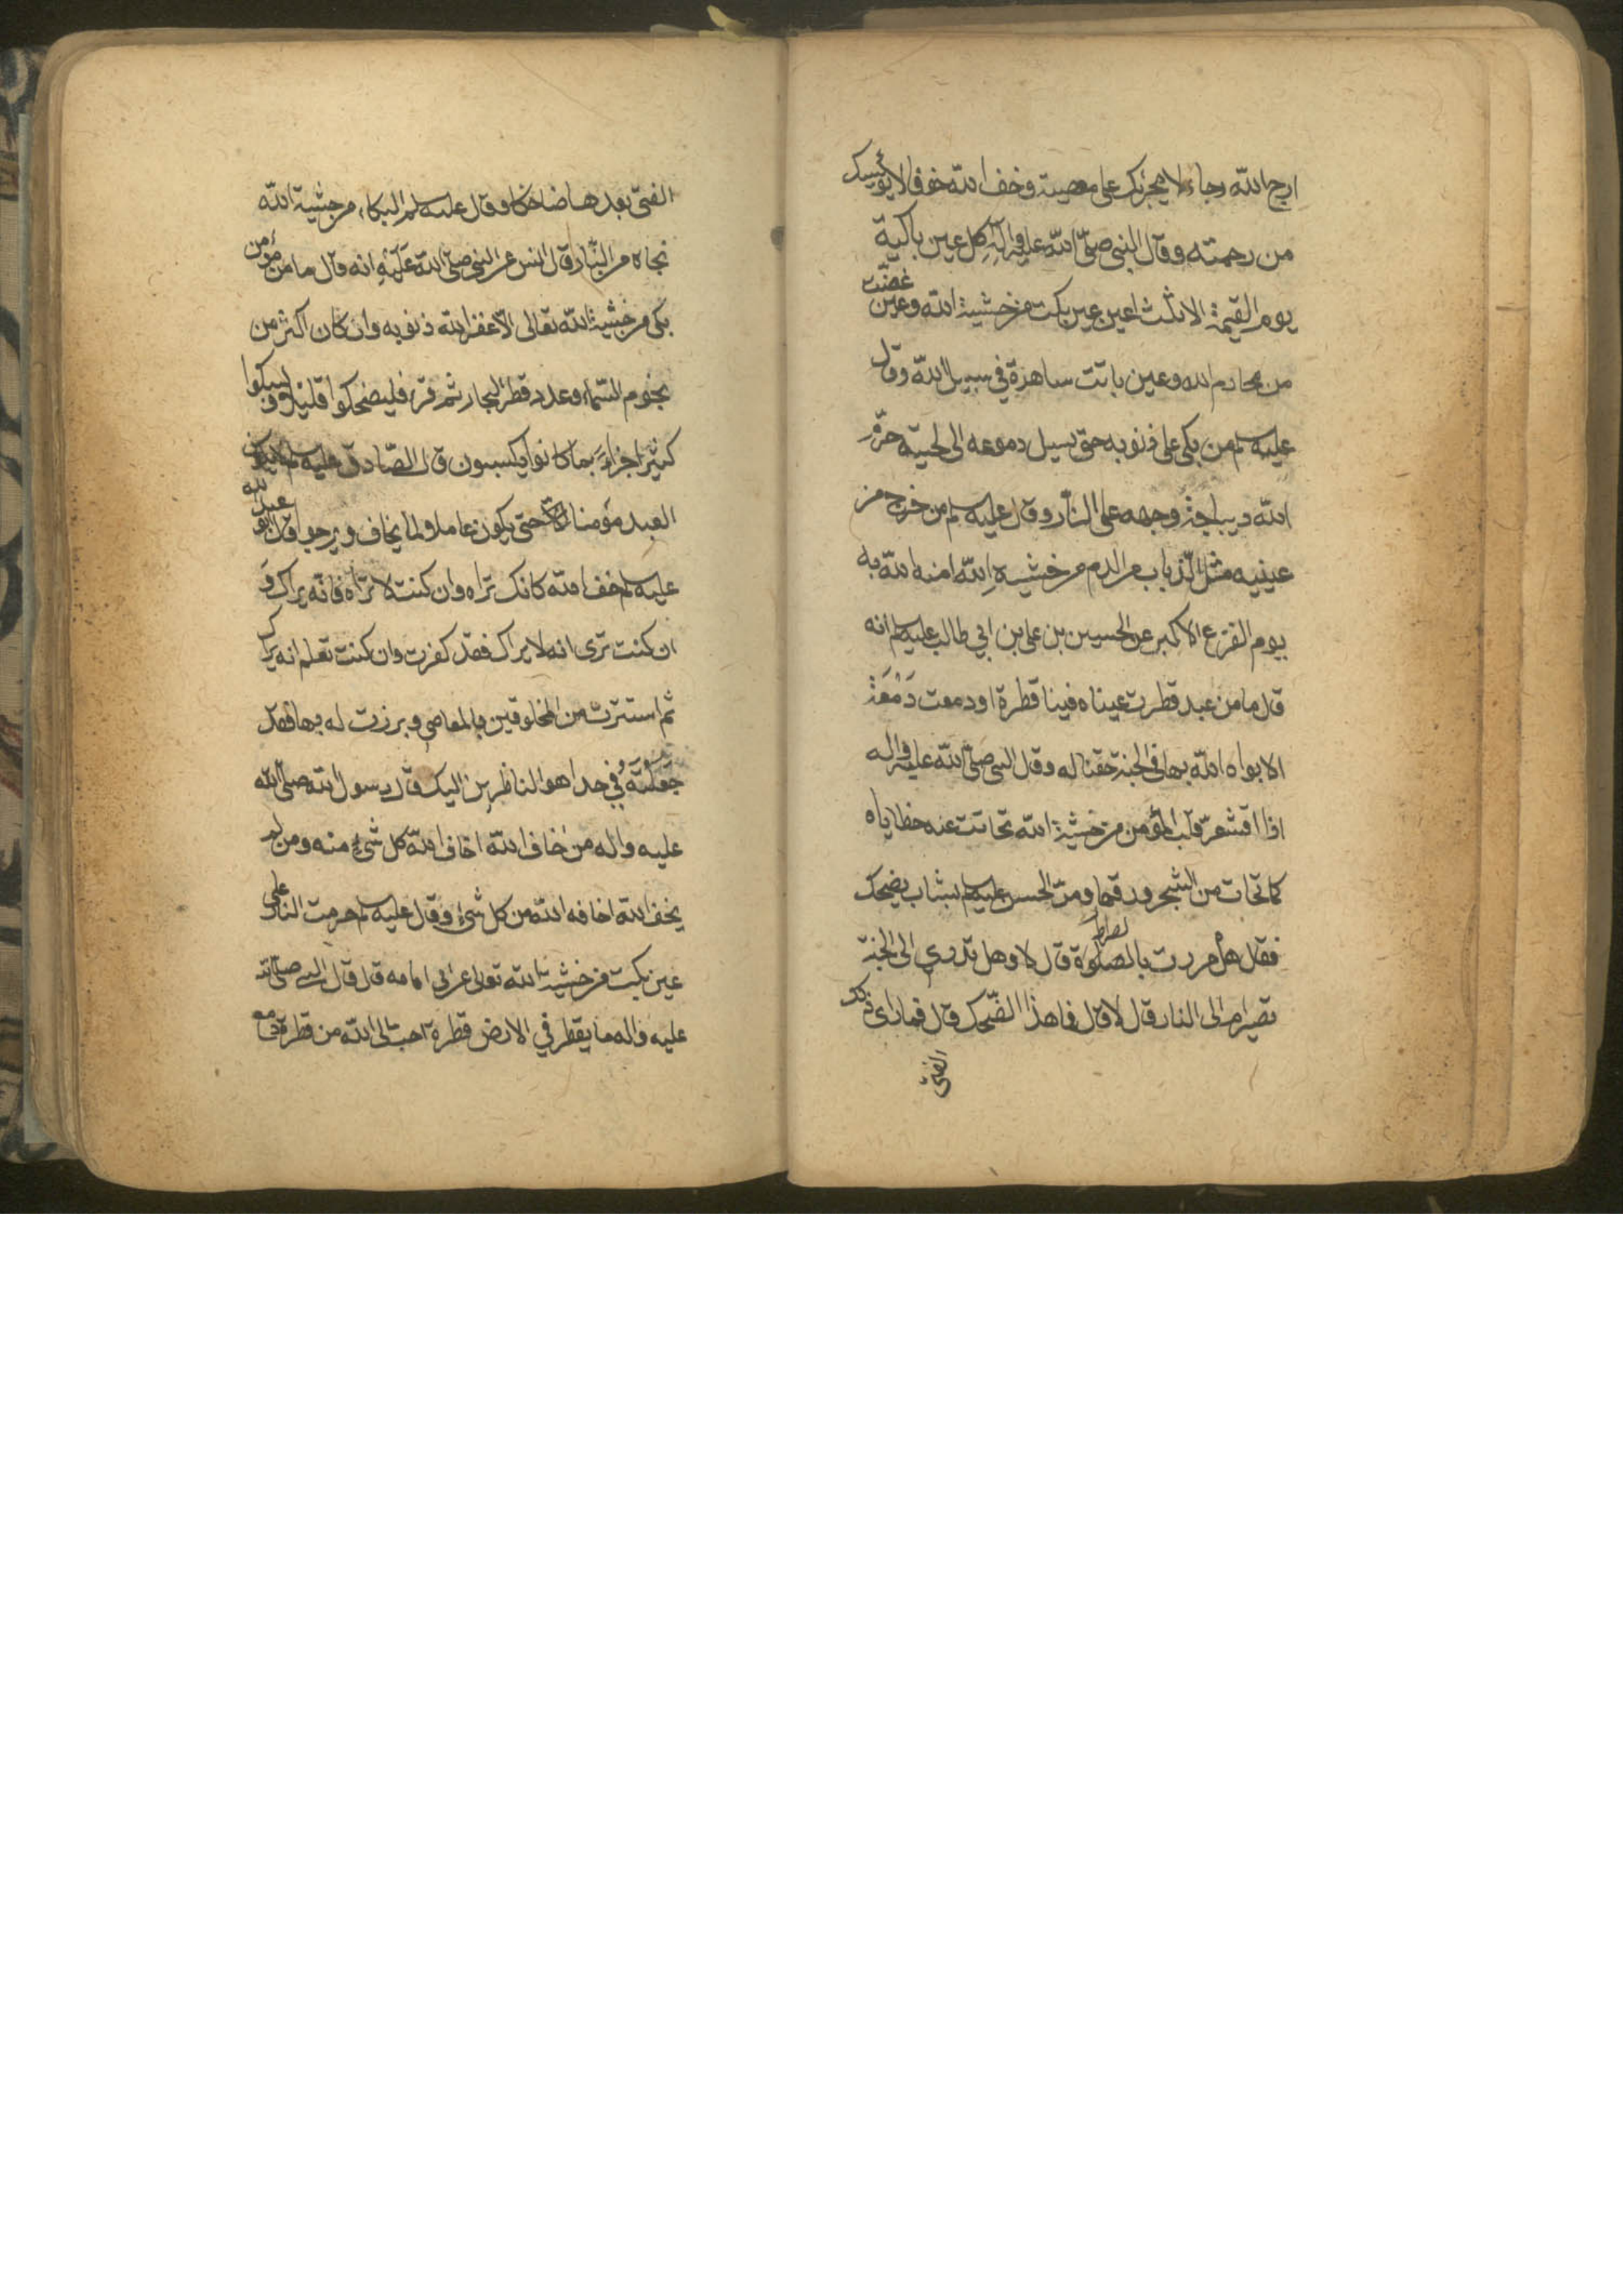 ارج الله رجاء لا يجرئك على معصية وخف الله خوفا لا يؤيسك
من رحمته وقال النبي صلى الله عليه وآله كل عين باكية
يوم القيمة الا ثلث اعين عين بكت من خشية الله وعين غضت
من محارم الله وعين باتت ساهرة في سبيل الله وقال
عليه سلم من بكى على ذنوبه حتى يسيل دموعه الى لحيته حرم
الله ديباجة وجهه على النار وقال عليه سلم من خرج من
عينيه مثل الذباب من الدم من خشية الله امنه الله به
يوم الفزع الاكبر عن الحسين بن على بن ابي طالب عليه سلم انه
قال ما من عبد قطرت عيناه فينا قطرة او دمعت دَمْعَة
الا بواه الله بها في الجنة حقبا له وقال النبي صلى الله عليه واله
اذا اقشعرّ قلب المؤمن من خشية الله تحاتت عنه خطاياه
كما تحات من الشجر ورقها ومرّ الحسن عليه سلم بشاب يضحك
فقال هل مررت بالصلوة لصراط قال لا وهل تدري الى الجنة
تصير ام الى النار قال لا قال فما هذا الضحك قال فما راى ذلك
الفتى
الفتى بعدها ضاحكا وقال عليه سلم البكاء من خشية الله
نجاة من النار قال انس عن النبي صلى الله عليه انه قال ما من مؤمن
بكى من خشية الله تعالى الا غفر الله ذنوبه وان كان اكثر من
نجوم السماء وعدد قطر البحار ثم قرء فليضحكوا قليلا وليبكوا
كثيرا جزاءً بما كانوا يكسبون قال الصادق عليه سلم لا يكون
العبد مؤمنا حتى يكون عاملا لما يخاف ويرجو قال ابو عبد الله
عليه سلم خف الله كانك تراه وان كنت لا تراه فانه يراك وَ
ان كنت ترى انه لا يراك فقد كفرت وان كنت تعلم انه يراك
ثم استترت من المخلوقين بالمعاصي وبرزت له بها فقد
جَعَلْتَهُ في حد اهو الناظرين اليك وقال رسول الله صلى الله
عليه واله من خاف الله اخاف الله كل شئ منه ومن لم
يخف الله اخافه الله من كل شئ وقال عليه سلم حرمت النار على
عين بكت من خشية الله تعالى عن ابي امامه قال قال النبي صلى الله
عليه واله ما يقطر في الارض قطرة احب الى الله من قطرة دمع